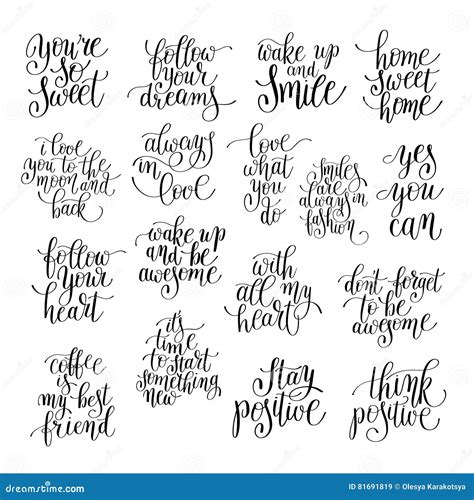 you're
so
sweet
follow
your
dreams
wake up
and
smile
home
sweet
home
i love
you to the
moon and
back
always
in
love
love
what
you
do
smiles
are
always in
fashion
yes
you
can
follow
your
heart
wake up
and be
awesome
with
all my
heart
don't forget
to be
awesome
coffee
is
my best
friend
it's
time
to start
something
new
stay
positive
think
positive
dreamstime.com
ID 81691819 © Olesya Karakotsya